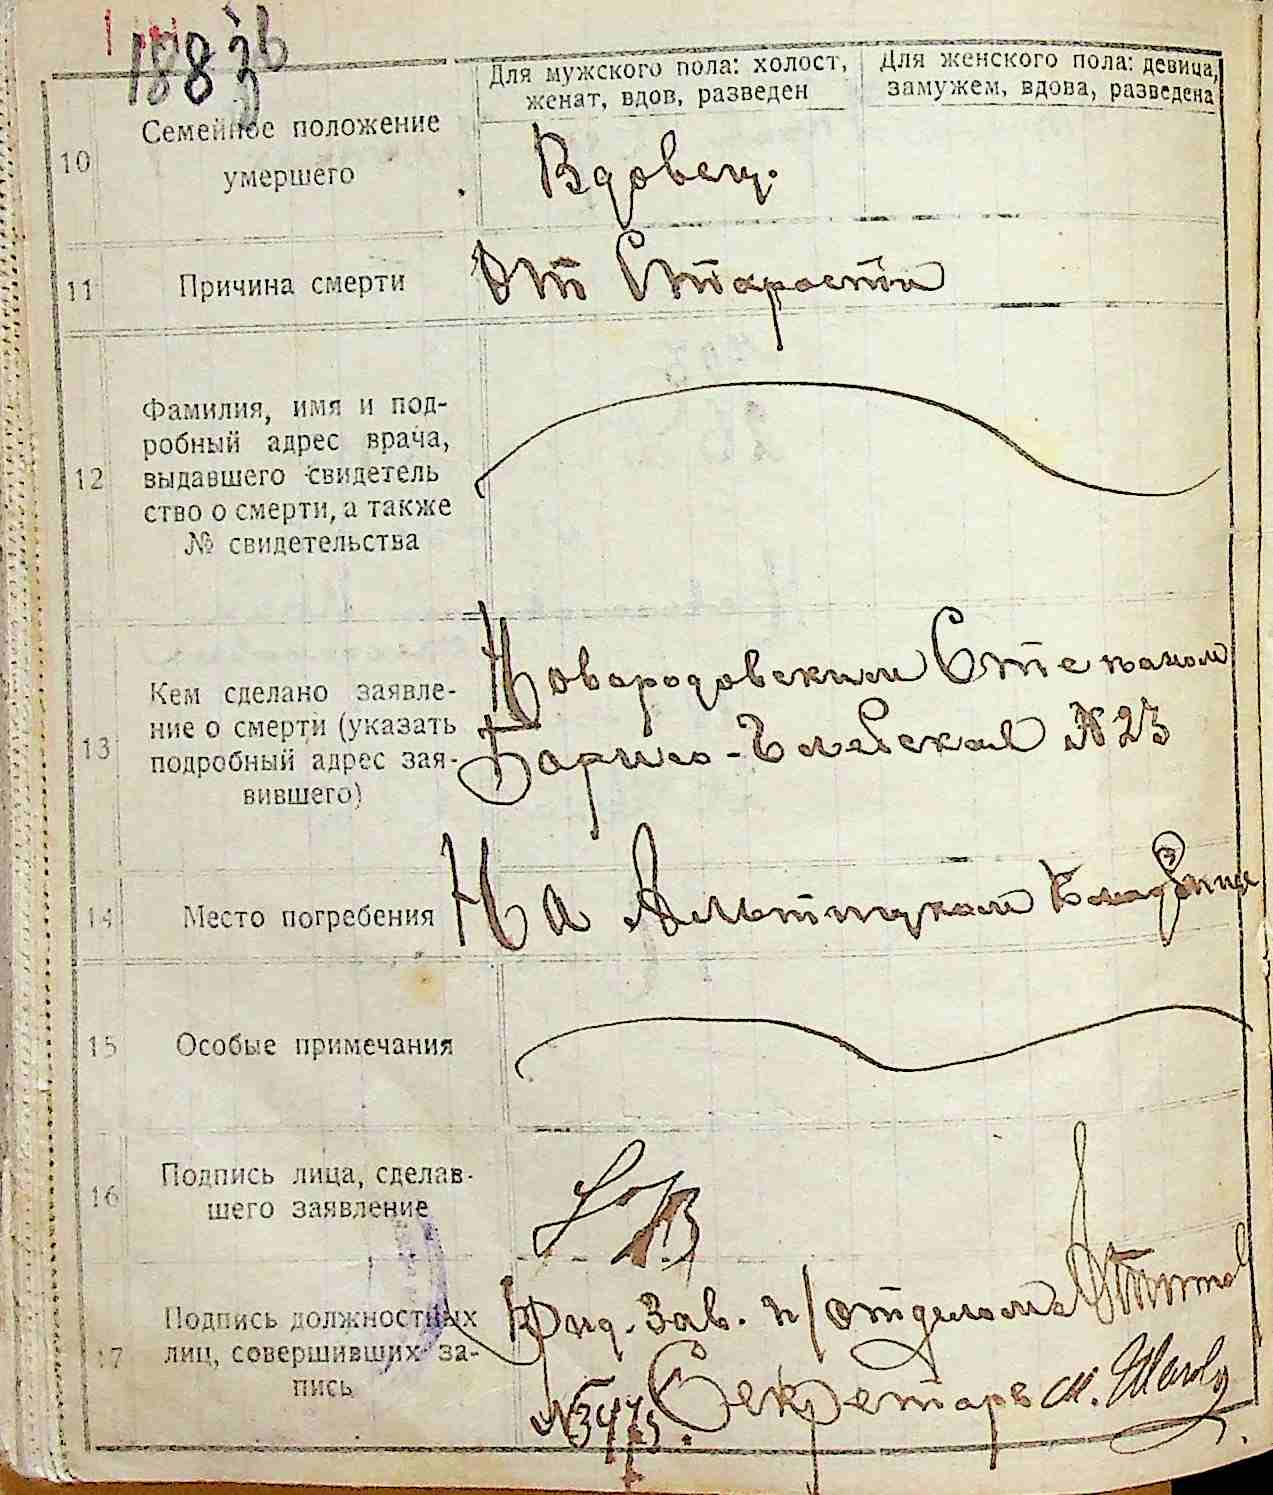 188 зв
Для мужского пола: холост,
женат, вдов, разведен
Для женского пола: девица,
замужем, вдова, разведена
10
Семейное положение
умершего
Вдовец.
11
Причина смерти
От Старости
12
Фамилия, имя и под-
робный адрес врача,
выдавшего свидетель
ство о смерти, а также
№ свидетельства
13
Кем сделано заявле-
ние о смерти (указать
подробный адрес зая-
вившего)
Новородовским Степаном
Борисо-Глебская № 23
14
Место погребения
На кладбище
15
Особые примечания
16
Подпись лица, сделав-
шего заявление
17
Подпись должностных
лиц, совершивших за-
пись
Зав. п/отделом
Секретарь М.